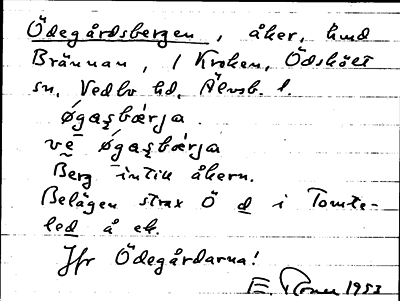 Ödegårdsbergen, åker, hmd
Brännan, 1 Kroken, Ödskölt
sn, Vedbo hd, Älvsb. l.
øgaʂbærja.
ve øgaʂbærja
Berg intill åkern.
Belägen strax Ö d i Tomte-
led å ek.
Jfr Ödegårdarna!
E. 1953